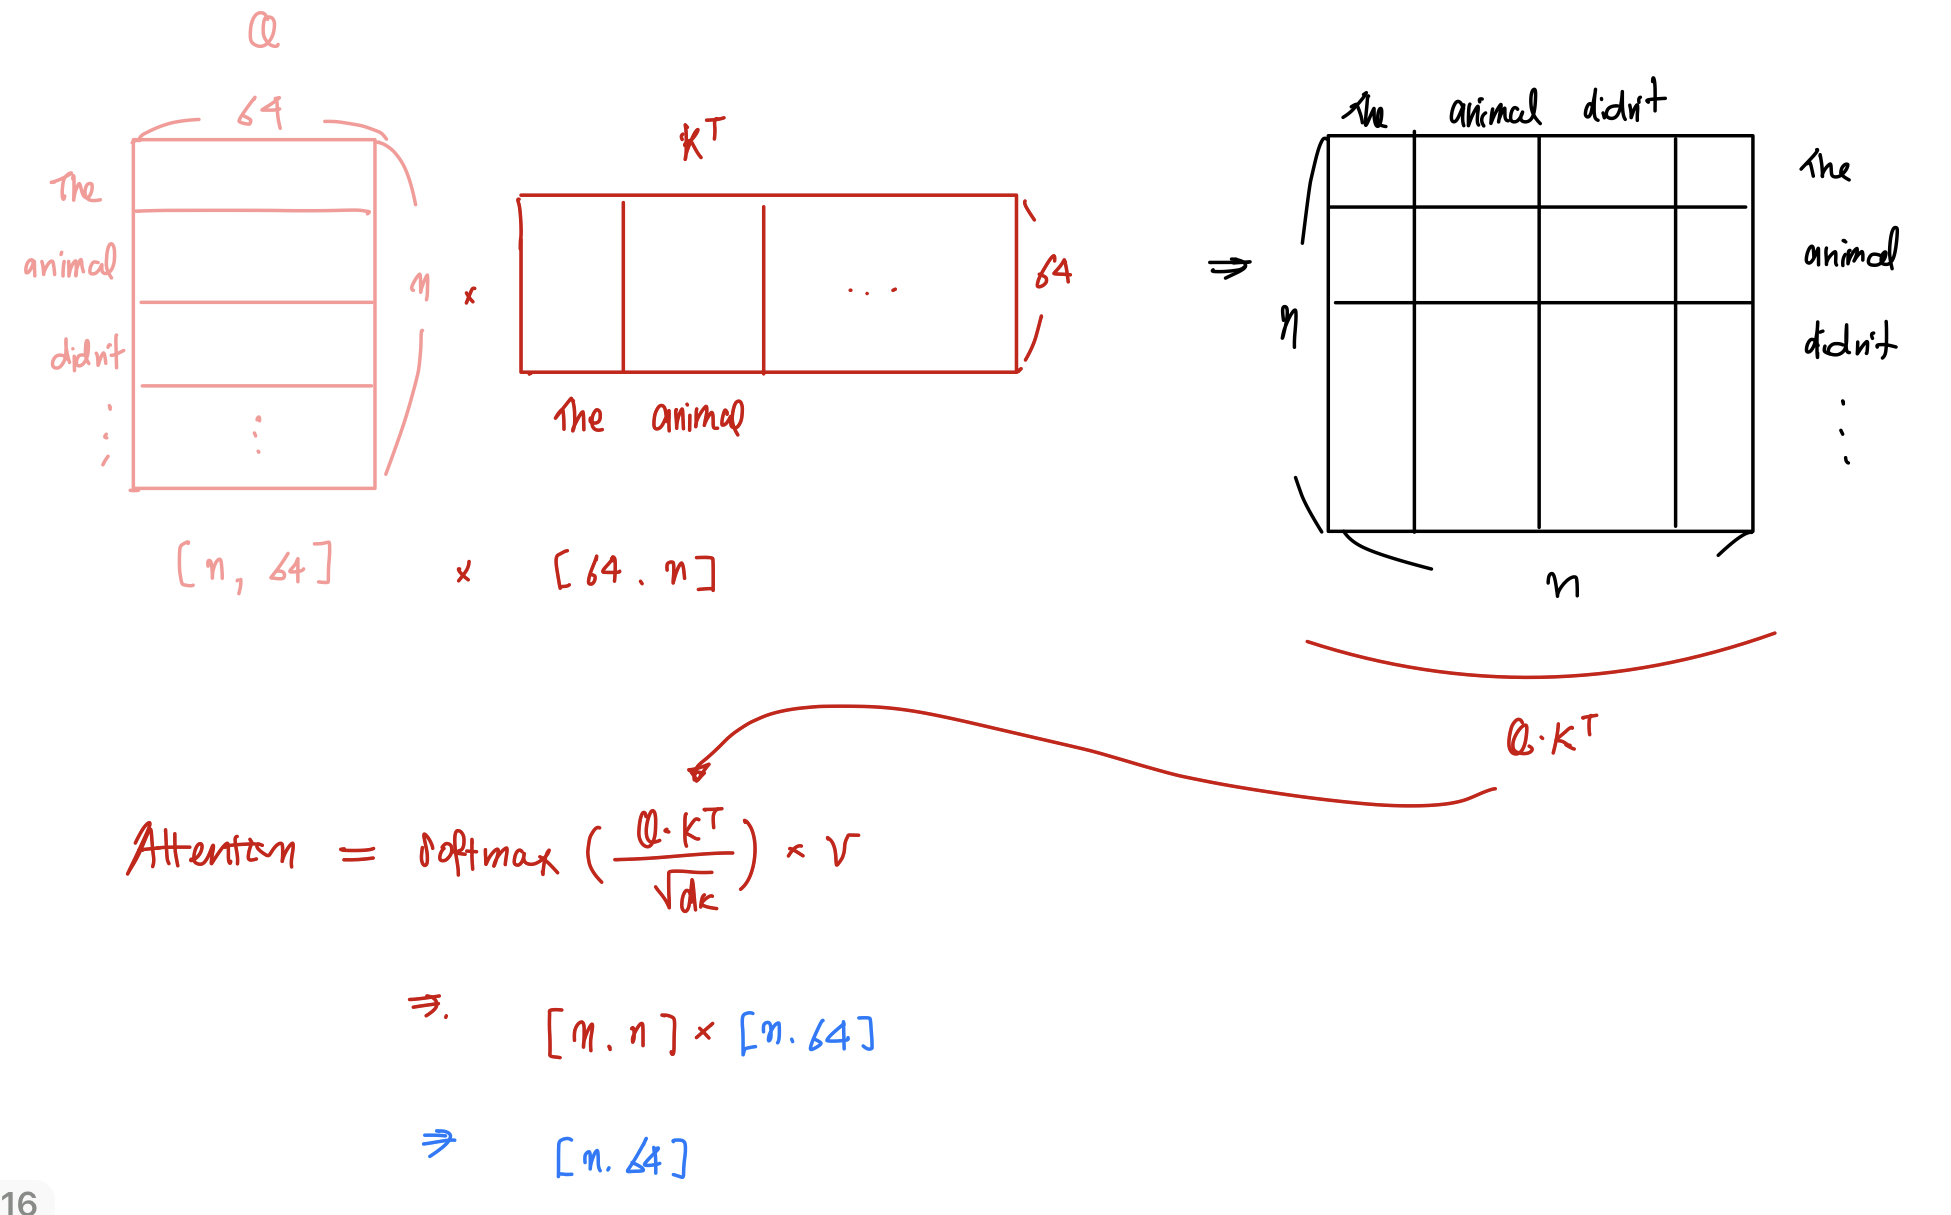 Q
64
The
animal
didn't
⋮
⋮
n
x
K^T
...
64
The animal
⇒
The animal didn't
The
animal
didn't
⋮
n
n
[n, 64] x [64. n]
Q·K^T
Attention = softmax (Q·K^T / √dk) x V
⇒. [n. n] x [n. 64]
⇒ [n. 64]
16